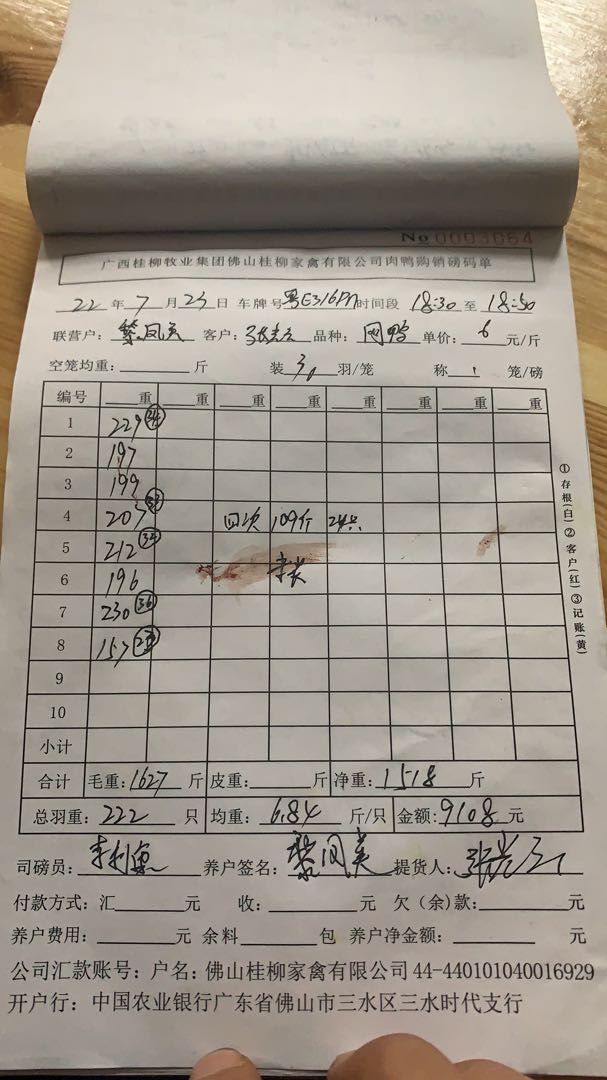 No 0003064
广西桂柳牧业集团佛山桂柳家禽有限公司肉鸭购销磅码单
22年7月23日 车牌号 粤E316 时间段 18:30至18:50
联营户：黎凤美 客户： 品种： 鸭 单价：6元/斤
空笼均重： 斤 装30羽/笼 称1笼/磅
编号 重 重 重 重 重 重 重 重
1 229 34
2 197
3 199
4 207 四次 109斤 24只
5 212
6 196
7 230 36
8 157
9
10
小计
合计 毛重：1627斤 皮重： 斤 净重：1518斤
总羽重：222只 均重：6.84斤/只 金额：9108元
司磅员： 养户签名：黎凤美 提货人：
付款方式：汇 元 收： 元 欠（余）款： 元
养户费用： 元 余料 包 养户净金额： 元
公司汇款账号：户名：佛山桂柳家禽有限公司 44-440101040016929
开户行：中国农业银行广东省佛山市三水区三水时代支行
①存根(白)②客户(红)③记账(黄)